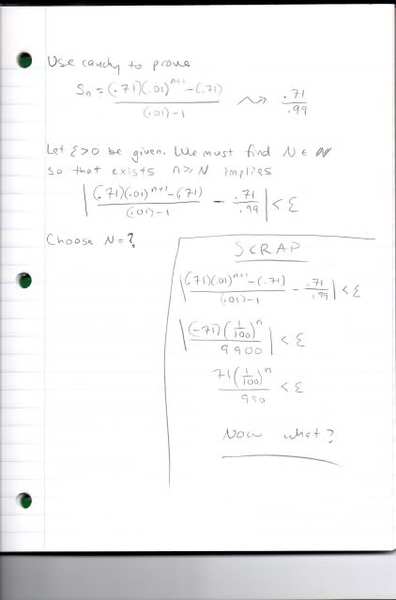 Use cauchy to prove
Sn = (.71)(.01)^(n+1) - (.71) / (.01) - 1 ⇝ .71 / .99
Let ε > 0 be given. We must find N ∈ ℕ
so that exists n ≥ N implies
| (.71)(.01)^(n+1) - (.71) / (.01) - 1 - .71 / .99 | < ε
Choose N = ?
SCRAP
| (.71)(.01)^(n+1) - (.71) / (.01) - 1 - .71 / .99 | < ε
| (-71)(1/100)^n / 9900 | < ε
71(1/100)^n / 990 < ε
Now what?